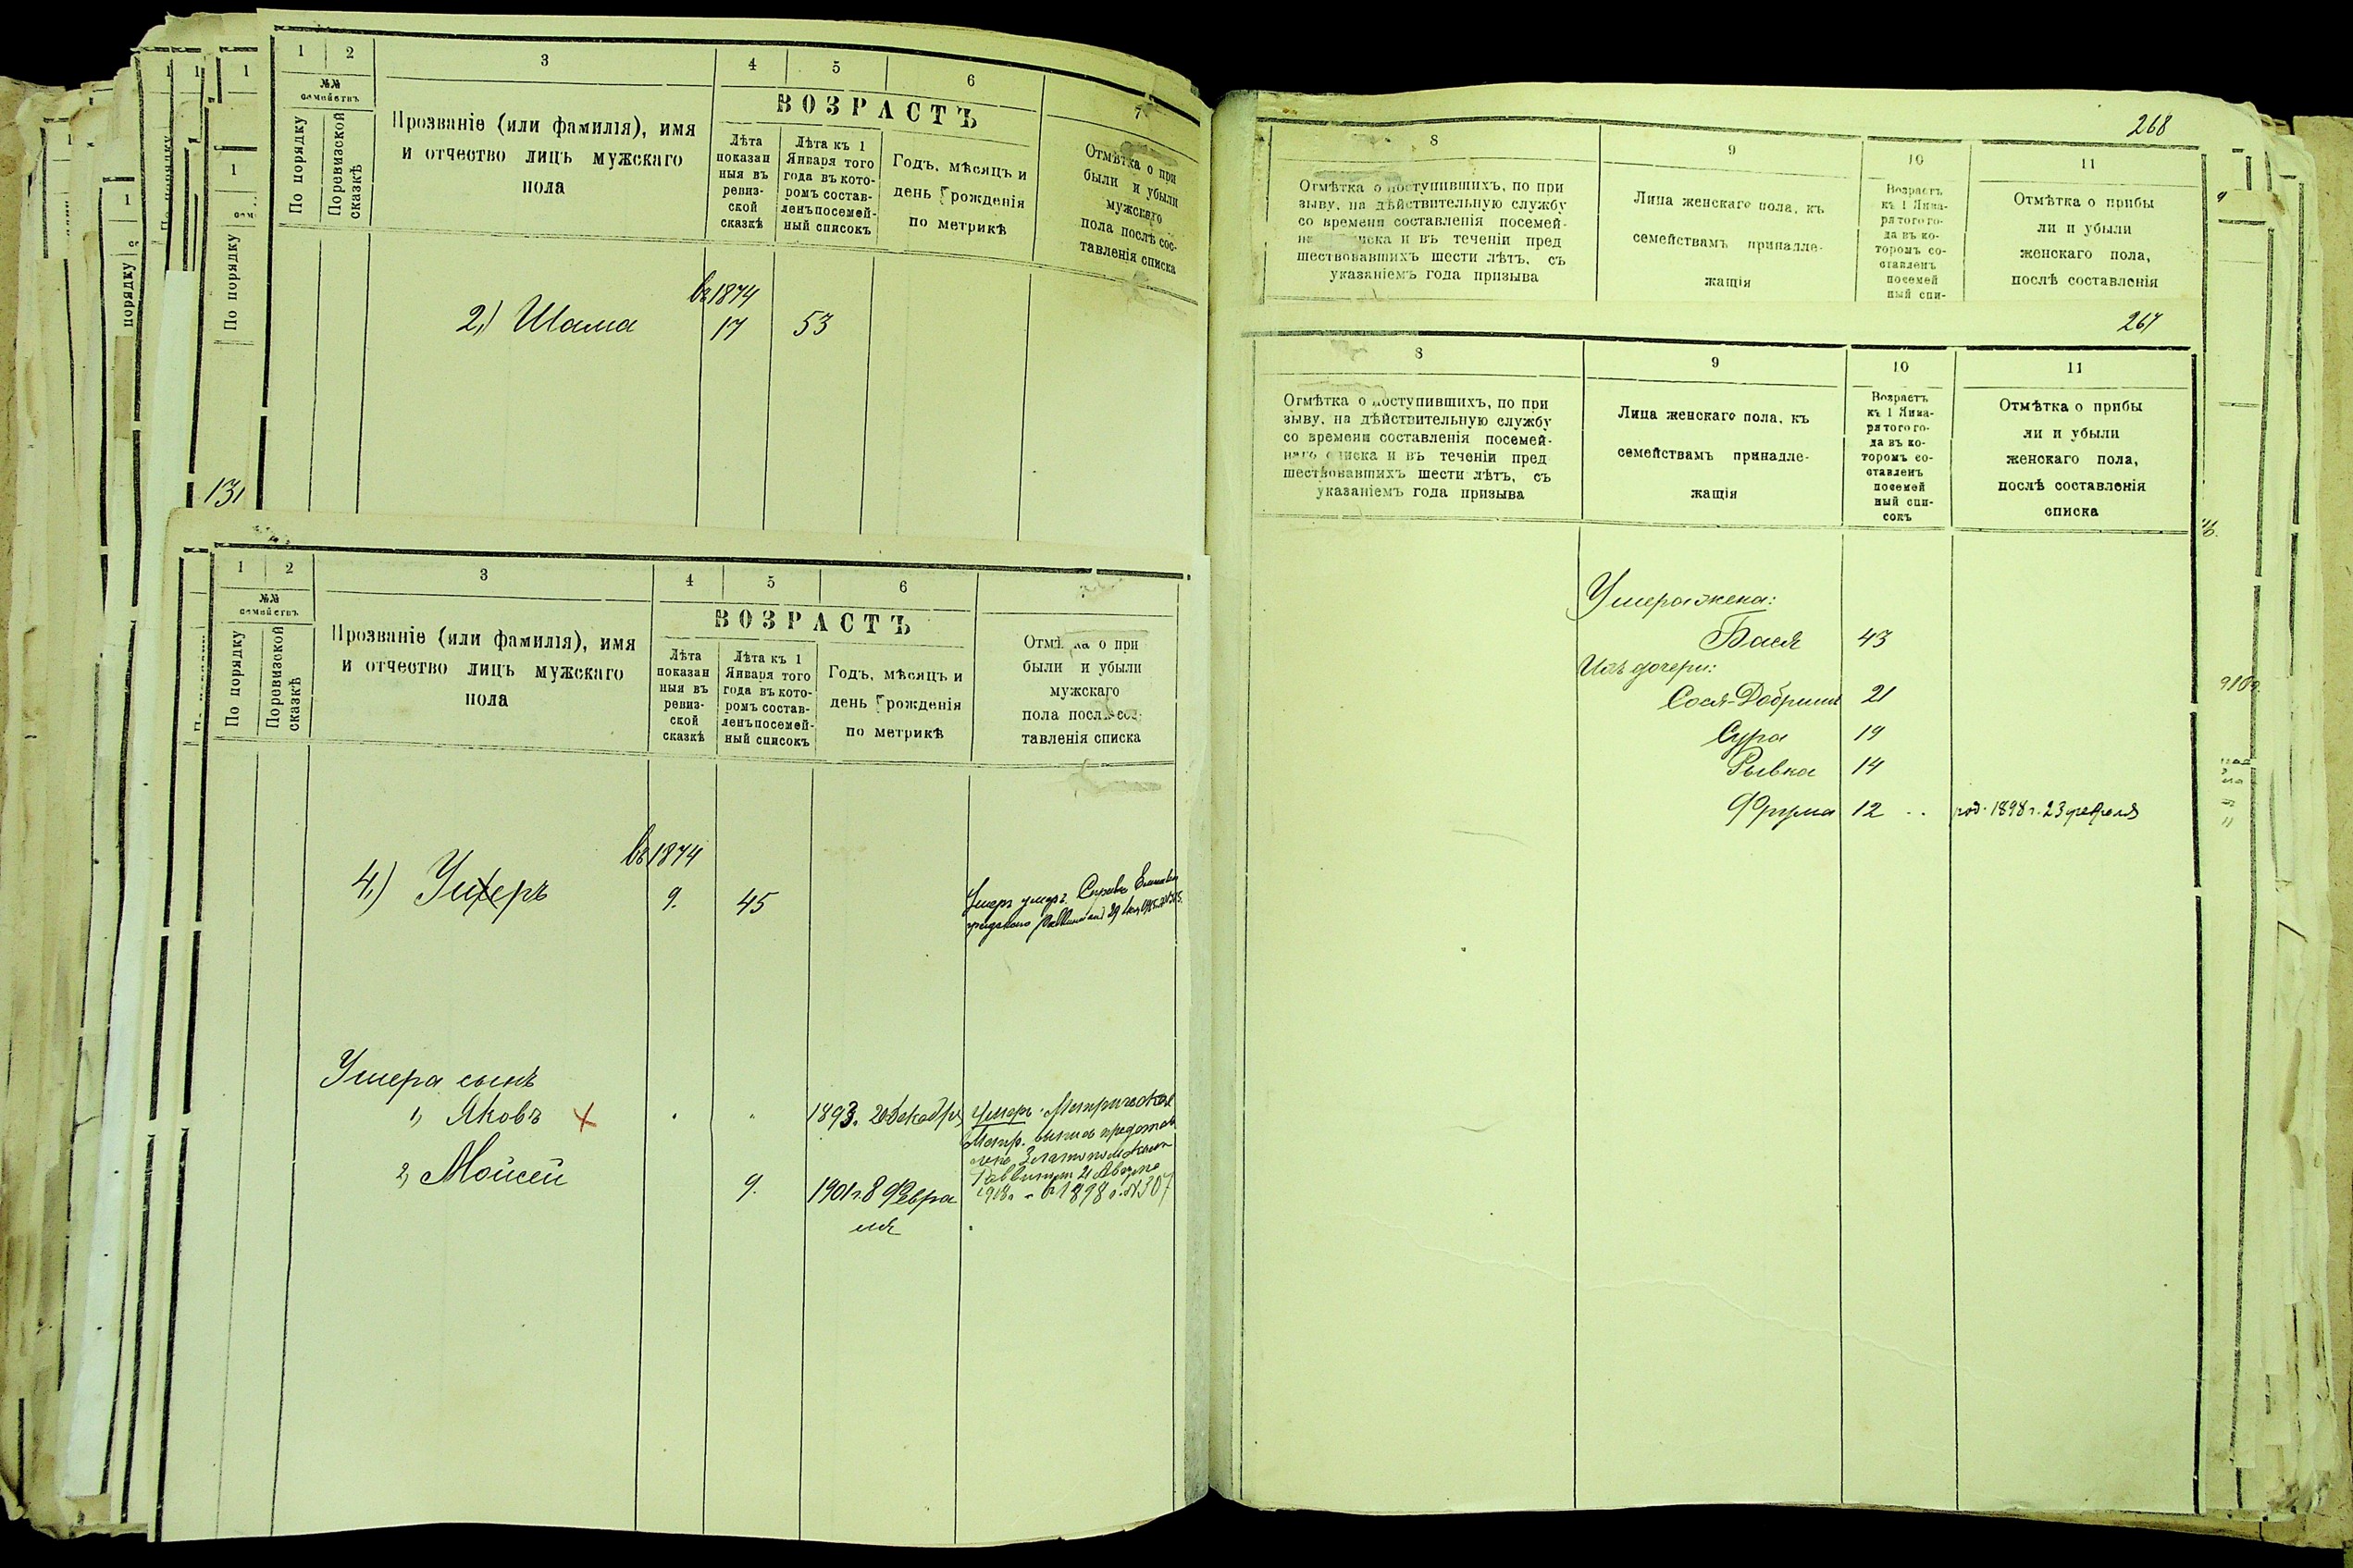 1 2 3 4 5 6 7
№№ семействъ
По порядку
Поревизской сказкѣ
Прозваніе (или фамилія), имя
и отчество лицъ мужскаго
пола
ВОЗРАСТЪ
Лѣта
показан
ныя въ
ревиз-
ской
сказкѣ
Лѣта къ 1
Января того
года въ кото-
ромъ состав-
ленъ посемей-
ный списокъ
Годъ, мѣсяцъ и
день рожденія
по метрикѣ
Отмѣтка о при
были и убыли
мужскаго
пола послѣ сос-
тавленія списка
въ 1874
2,) Шама 17 53
131
1 2 3 4 5 6
№№ семействъ
По порядку
Поревизской сказкѣ
Прозваніе (или фамилія), имя
и отчество лицъ мужскаго
пола
ВОЗРАСТЪ
Лѣта
показан
ныя въ
ревиз-
ской
сказкѣ
Лѣта къ 1
Января того
года въ кото-
ромъ состав-
ленъ посемей-
ный списокъ
Годъ, мѣсяцъ и
день рожденія
по метрикѣ
о при
были и убыли
мужскаго
пола
тавленія списка
въ 1874
4,) Ушеръ 9. 45
Ушеръ умеръ.
Ушера сынъ
1, Яковъ 1893. 20 Декабря Умеръ. Метрическая
2, Моисей 9. 1901 г. 8 Февра
ля
Раввиномъ 21 Августа
1918 г. 1898 г. № 307
268
8 9 10 11
Отмѣтка о поступившихъ, по при
зыву, на дѣйствительную службу
со времени составленія посемей-
и въ теченіи пред
шествовавшихъ шести лѣтъ, съ
указаніемъ года призыва
Лица женскаго пола, къ
семействамъ принадле-
жащія
Возрастъ
къ 1 Янва-
ря того го-
да въ ко-
торомъ со-
ставленъ
посемей
ный спи-
Отмѣтка о прибы
ли и убыли
женскаго пола,
послѣ составленія
267
8 9 10 11
Отмѣтка о поступившихъ, по при
зыву, на дѣйствительную службу
со времени составленія посемей-
наго списка и въ теченіи пред
шествовавшихъ шести лѣтъ, съ
указаніемъ года призыва
Лица женскаго пола, къ
семействамъ принадле-
жащія
Возрастъ
къ 1 Янва-
ря того го-
да въ ко-
торомъ со-
ставленъ
посемей
ный спи-
сокъ
Отмѣтка о прибы
ли и убыли
женскаго пола,
послѣ составленія
списка
Ушера жена:
Бася 43
Ихъ дочери:
Сося-Добрыш 21
Сура 19
Рывка 14
Фрума 12 род. 1898 г. 23 февраля